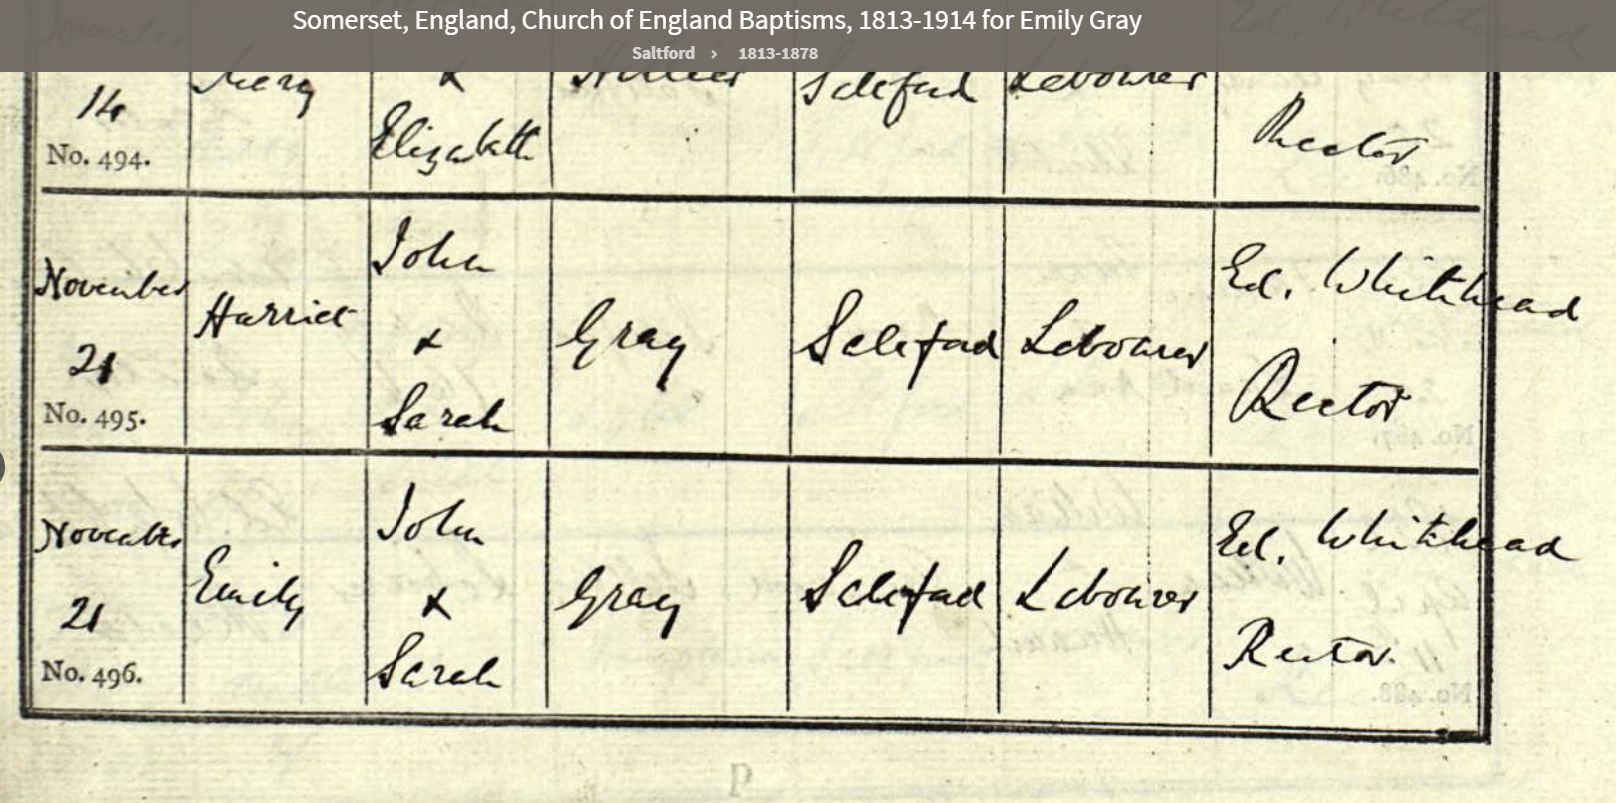 Somerset, England, Church of England Baptisms, 1813-1914 for Emily Gray
Saltford › 1813-1878
14
No. 494.
Mary
&
Elizabeth
Saltford
Labourer
Rector
November
21
No. 495.
Harriet
John
&
Sarah
Gray
Saltford
Labourer
Ed. Whitehead
Rector
November
21
No. 496.
Emily
John
&
Sarah
Gray
Saltford
Labourer
Ed. Whitehead
Rector.
P